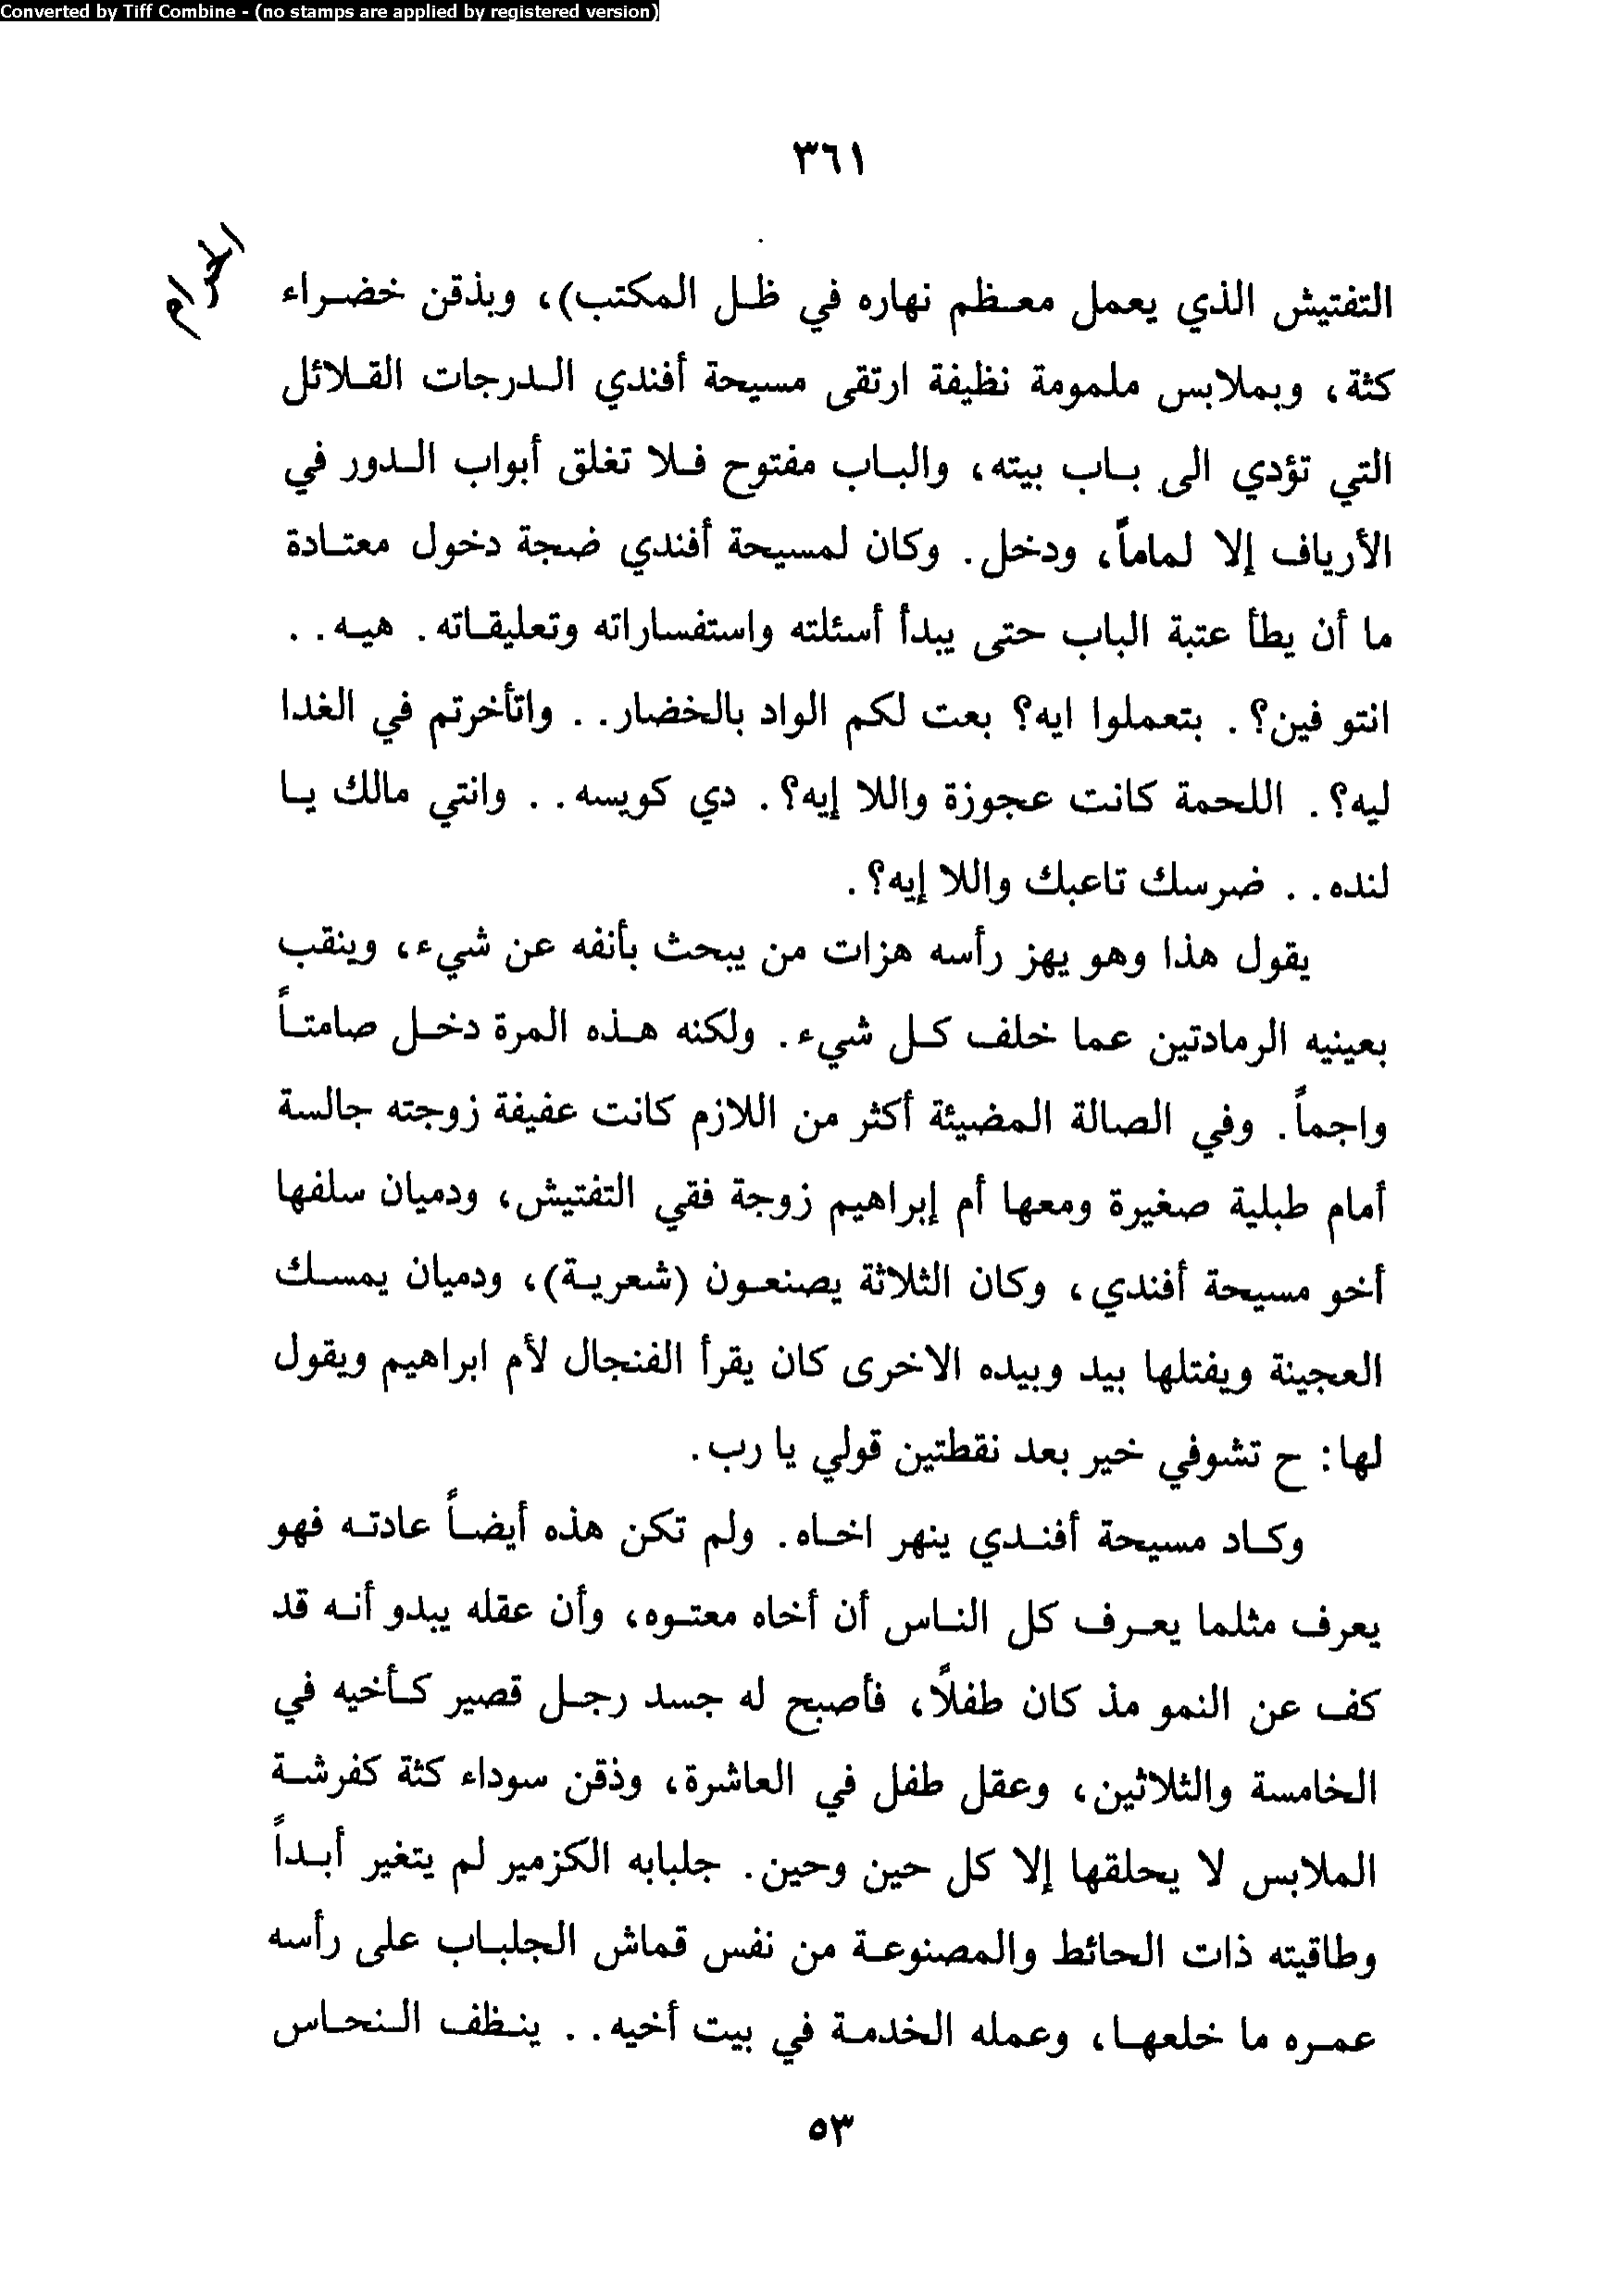 Converted by Tiff Combine - (no stamps are applied by registered version)
٣٦١
الحرام
التفتيش الذي يعمل معظم نهاره في ظل المكتب)، وبذقن خضراء
كثة، وبملابس ملمومة نظيفة ارتقى مسيحة أفندي الدرجات القلائل
التي تؤدي الى باب بيته، والباب مفتوح فلا تغلق أبواب الدور في
الأرياف إلا لماماً، ودخل. وكان لمسيحة أفندي ضجة دخول معتادة
ما أن يطأ عتبة الباب حتى يبدأ أسئلته واستفساراته وتعليقاته. هيه..
انتو فين؟. بتعملوا ايه؟ بعت لكم الواد بالخضار.. واتأخرتم في الغدا
ليه؟. اللحمة كانت عجوزة واللا إيه؟. دي كويسه.. وانتي مالك يا
لنده.. ضرسك تاعبك واللا إيه؟.
يقول هذا وهو يهز رأسه هزات من يبحث بأنفه عن شيء، وينقب
بعينيه الرمادتين عما خلف كل شيء. ولكنه هذه المرة دخل صامتاً
واجماً. وفي الصالة المضيئة أكثر من اللازم كانت عفيفة زوجته جالسة
أمام طبلية صغيرة ومعها أم إبراهيم زوجة فقي التفتيش، ودميان سلفها
أخو مسيحة أفندي، وكان الثلاثة يصنعون (شعرية)، ودميان يمسك
العجينة ويفتلها بيد وبيده الاخرى كان يقرأ الفنجال لأم ابراهيم ويقول
لها: ح تشوفي خير بعد نقطتين قولي يا رب.
وكاد مسيحة أفندي ينهر اخاه. ولم تكن هذه أيضاً عادته فهو
يعرف مثلما يعرف كل الناس أن أخاه معتوه، وأن عقله يبدو أنه قد
كف عن النمو مذ كان طفلاً، فأصبح له جسد رجل قصير كأخيه في
الخامسة والثلاثين، وعقل طفل في العاشرة، وذقن سوداء كثة كفرشة
الملابس لا يحلقها إلا كل حين وحين. جلبابه الكزمير لم يتغير أبداً
وطاقيته ذات الحائط والمصنوعة من نفس قماش الجلباب على رأسه
عمره ما خلعها، وعمله الخدمة في بيت أخيه.. ينظف النحاس
٥٣